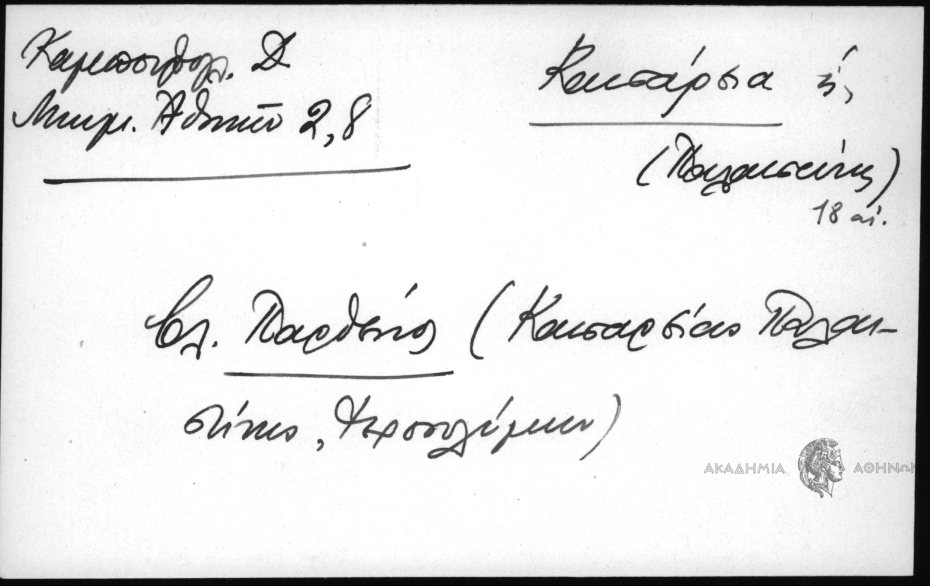 Καμπούρογλ. Δ
Μνημ. Ἀθηνῶν 2,8
Καισάρσια ἡ,
(Παλαιστίνης)
18 αἰ.
βλ. Παρθένιος (Καισαρείας Παλαι-
στίνης, Ἱεροσολύμων)
ΑΚΑΔΗΜΙΑ ΑΘΗΝΩΝ